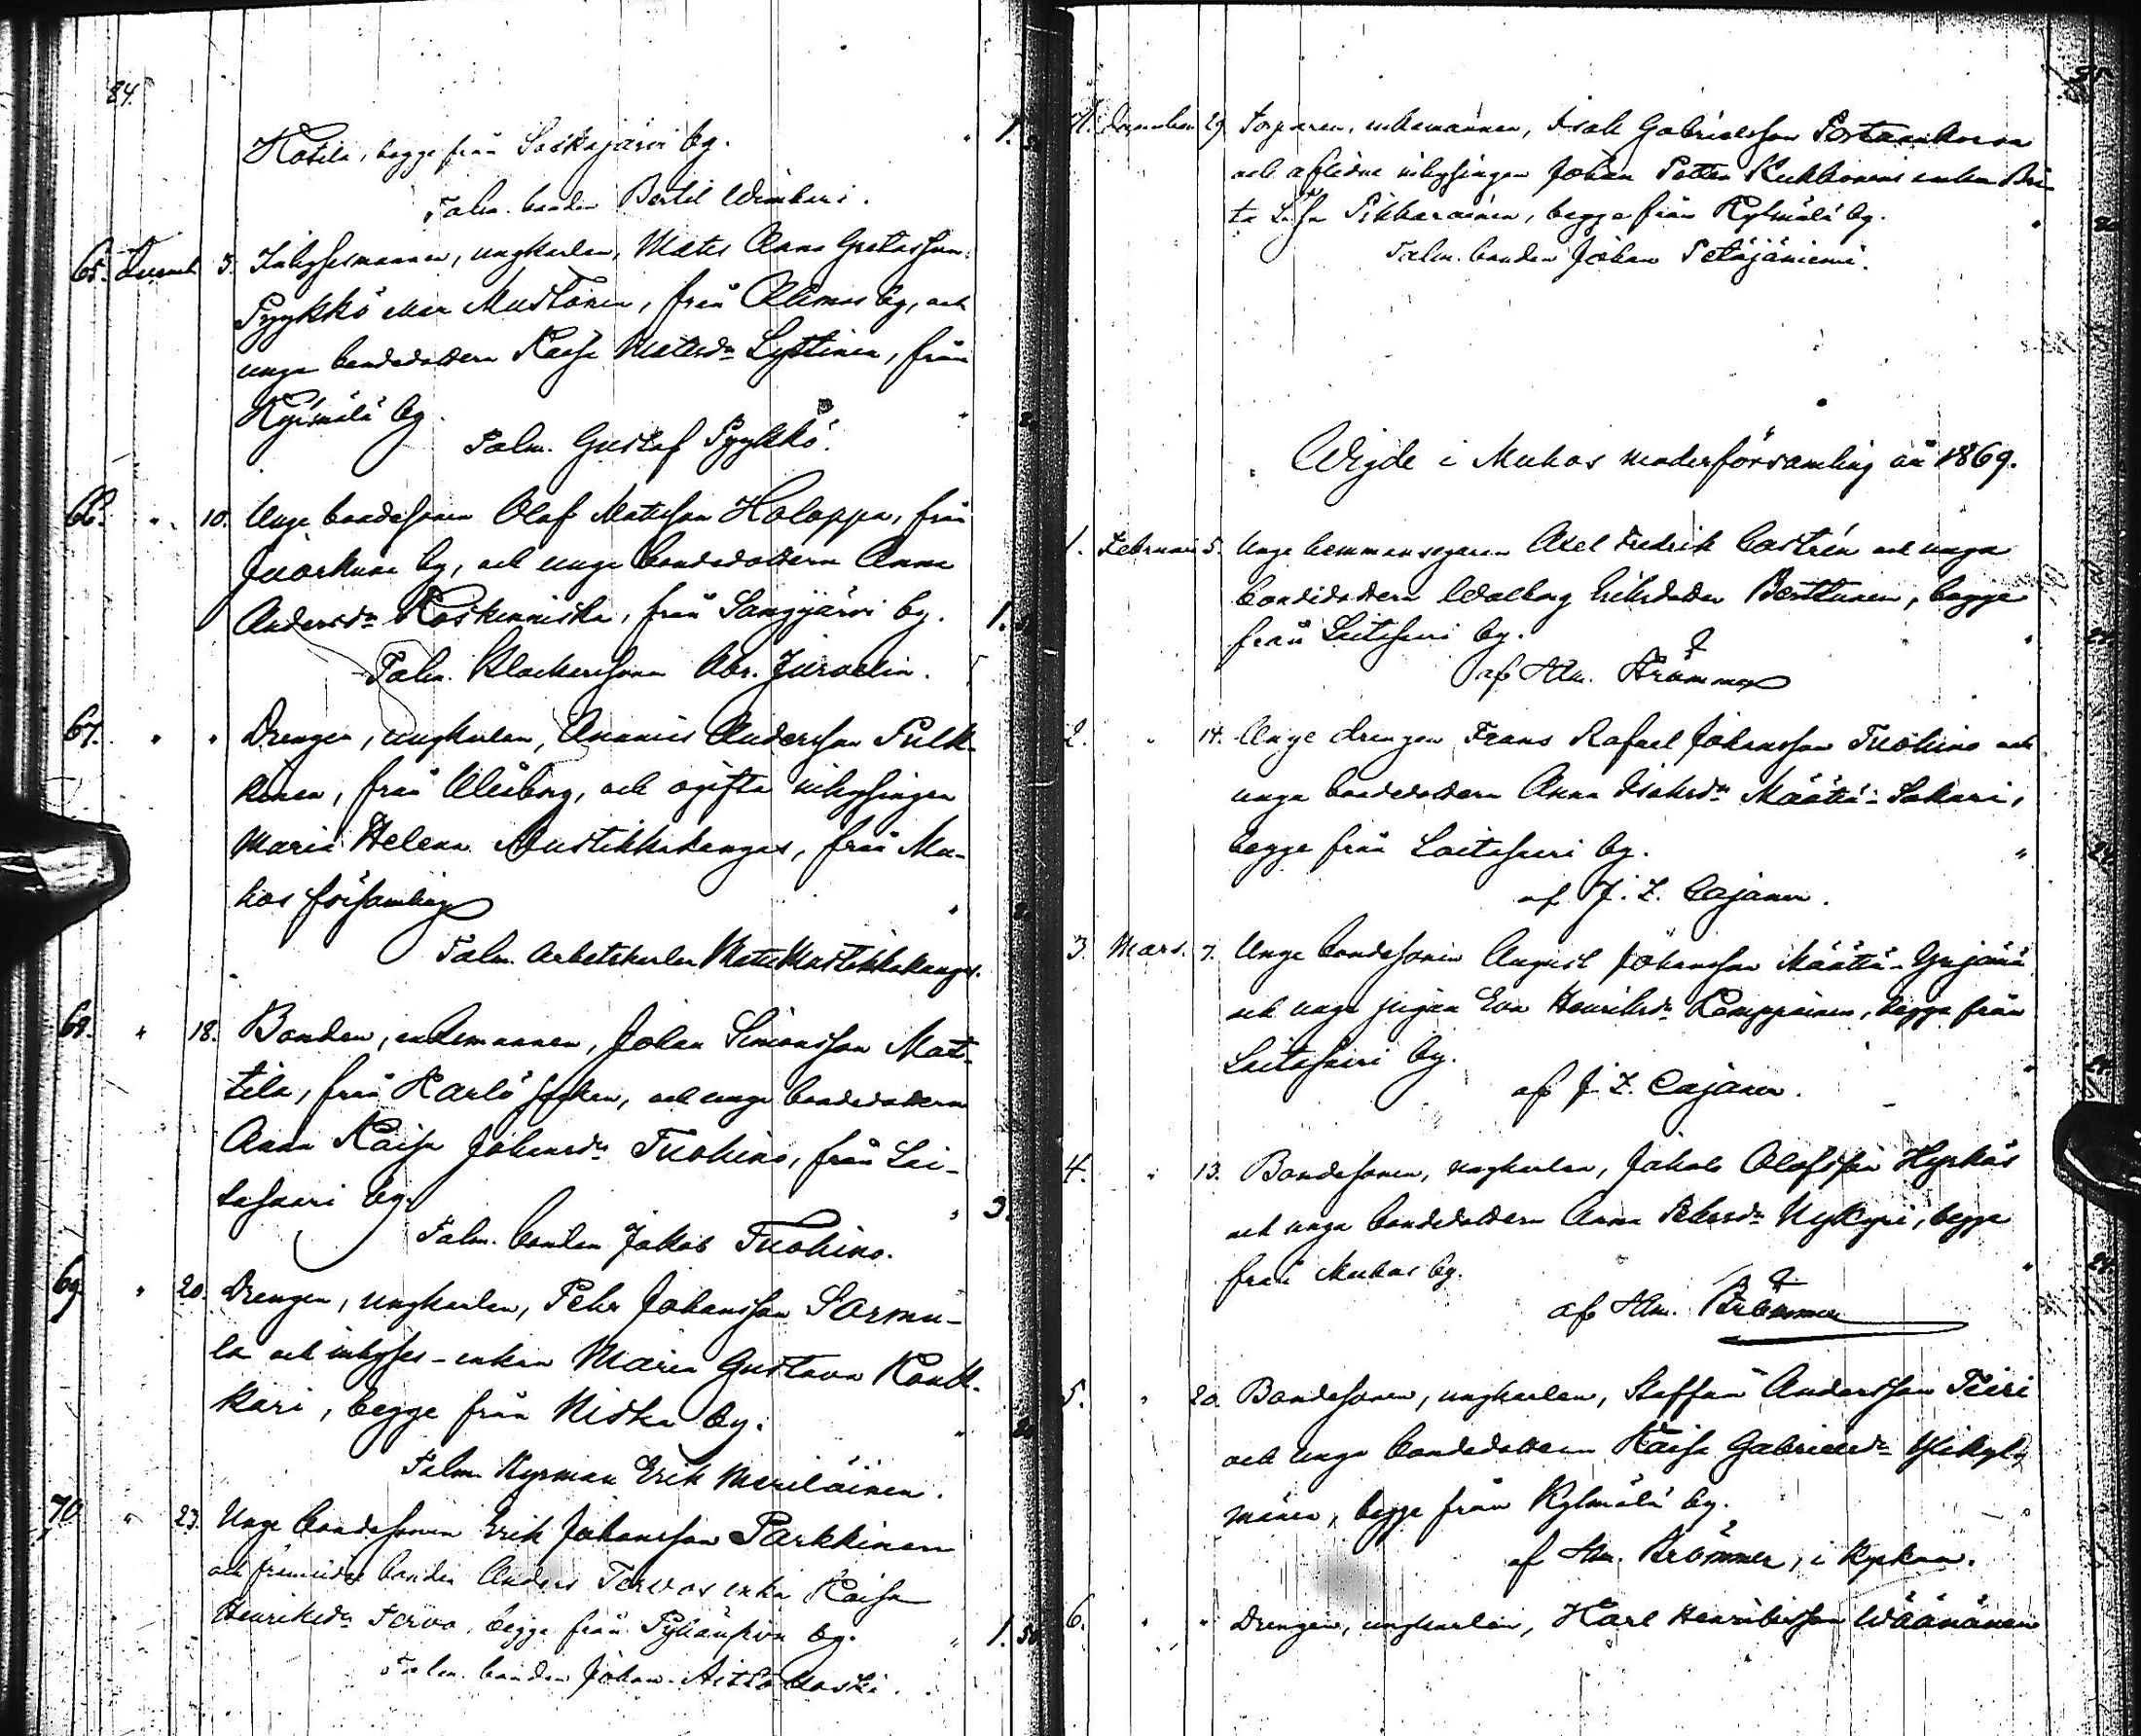 84.
Hatila, begge från Soskajärvi by. " 1.
Talm. bonden Bertil Wimberi.
65. Decemb. 5. Inhysesmannen, ungkarlen, Mats Anna Gretasson
Pyykkö eller Mustonen, från Ahmas by, och
unga bondedottern Kaisa Matsdr Lyttinen, från
Kylmälä by. "
Talm. Gustaf Pyykkö.
66. " 10. Unge bondesonen Olof Matsson Holappa, från
Juorkuna by, och unga bondedottern Anna
Andersdr Koskenniska, från Sangijärvi by. 1.
Talm. Klockaresonen Abr. Jurvelin.
67. " " Drengen, ungkarlen, Ananias Andersson Pulk-
kinen, från Uleåborg, och ogifta inhysingen
Maria Helena Mustikkakangas, från Mu-
hos församling "
Talm. Arbetskarlen Mats Mustikkakangas.
68. " 18. Bonden, enkemannen, Johan Simonsson Mat-
tila, från Karlö socken, och unga bondedottern
Anna Kaisa Johansdr Tuohino, från Lai-
tasaari by. " 3.
Talm. bonden Jakob Tuohino.
69 " 20. Drengen, ungkarlen, Pehr Johansson Sormu-
la och inhyses-enkan Maria Gustava Kauk-
kari, begge från Niska by. "
Talm. Nyman Erik Meriläinen.
70 " 23. Unge bondesonen Erik Johansson Parkkinen
och framlidne bonden Anders Tervos enka Kaisa
Henriksdr Tervo, begge från Pyhänsivu by. " 1. 50
Talm. bonden Johan Aittokoski.
85
71. December 29. Torparen, enkemannen, Isak Gabrielsson Portaankorva
och aflidne inhysingen Johan Petter Kukkonens enka Bri-
ta Lisa Pikkarainen, begge från Kylmälä by. "
Talm. bonden Johan Petäjäniemi.
Wigde i Muhos moderförsamling år 1869.
1. Februari 5. Unge hemmansegaren Axel Fredrik Castrén och unga
bondedottern Walborg Eriksdotter Berttunen, begge
från Laitasaari by. " 24
af Hm. Brömmer
2. " 14. Unge drengen Frans Rafael Johansson Tuohino och
unga bondedottern Anna Isaksdr Määttä-Sakari,
begge från Laitasaari by. " 24
af J. F. Cajaner.
3. Mars. 7. Unge bondesonen August Johansson Määttä-Yrjänä
och unga pigan Eva Henriksdr Kemppainen, begge från
Laitasaari by. " 24
af J. F. Cajaner.
4. " 13. Bondesonen, ungkarlen, Jakob Olofsson Hyrkäs
och unga bondedottern Anna Pehrsdr Nykyri, begge
från Muhos by. " 24.
af Hm. Brömmer
5. " 20. Bondesonen, ungkarlen, Staffan Andersson Teiri
och unga bondedottern Kaisa Gabrielsdr Ylikyl-
mänen, begge från Kylmälä by. "
af Hm. Brömmer, i kyrkan.
6. " " Drengen, ungkarlen, Karl Henriksson Wäänänen